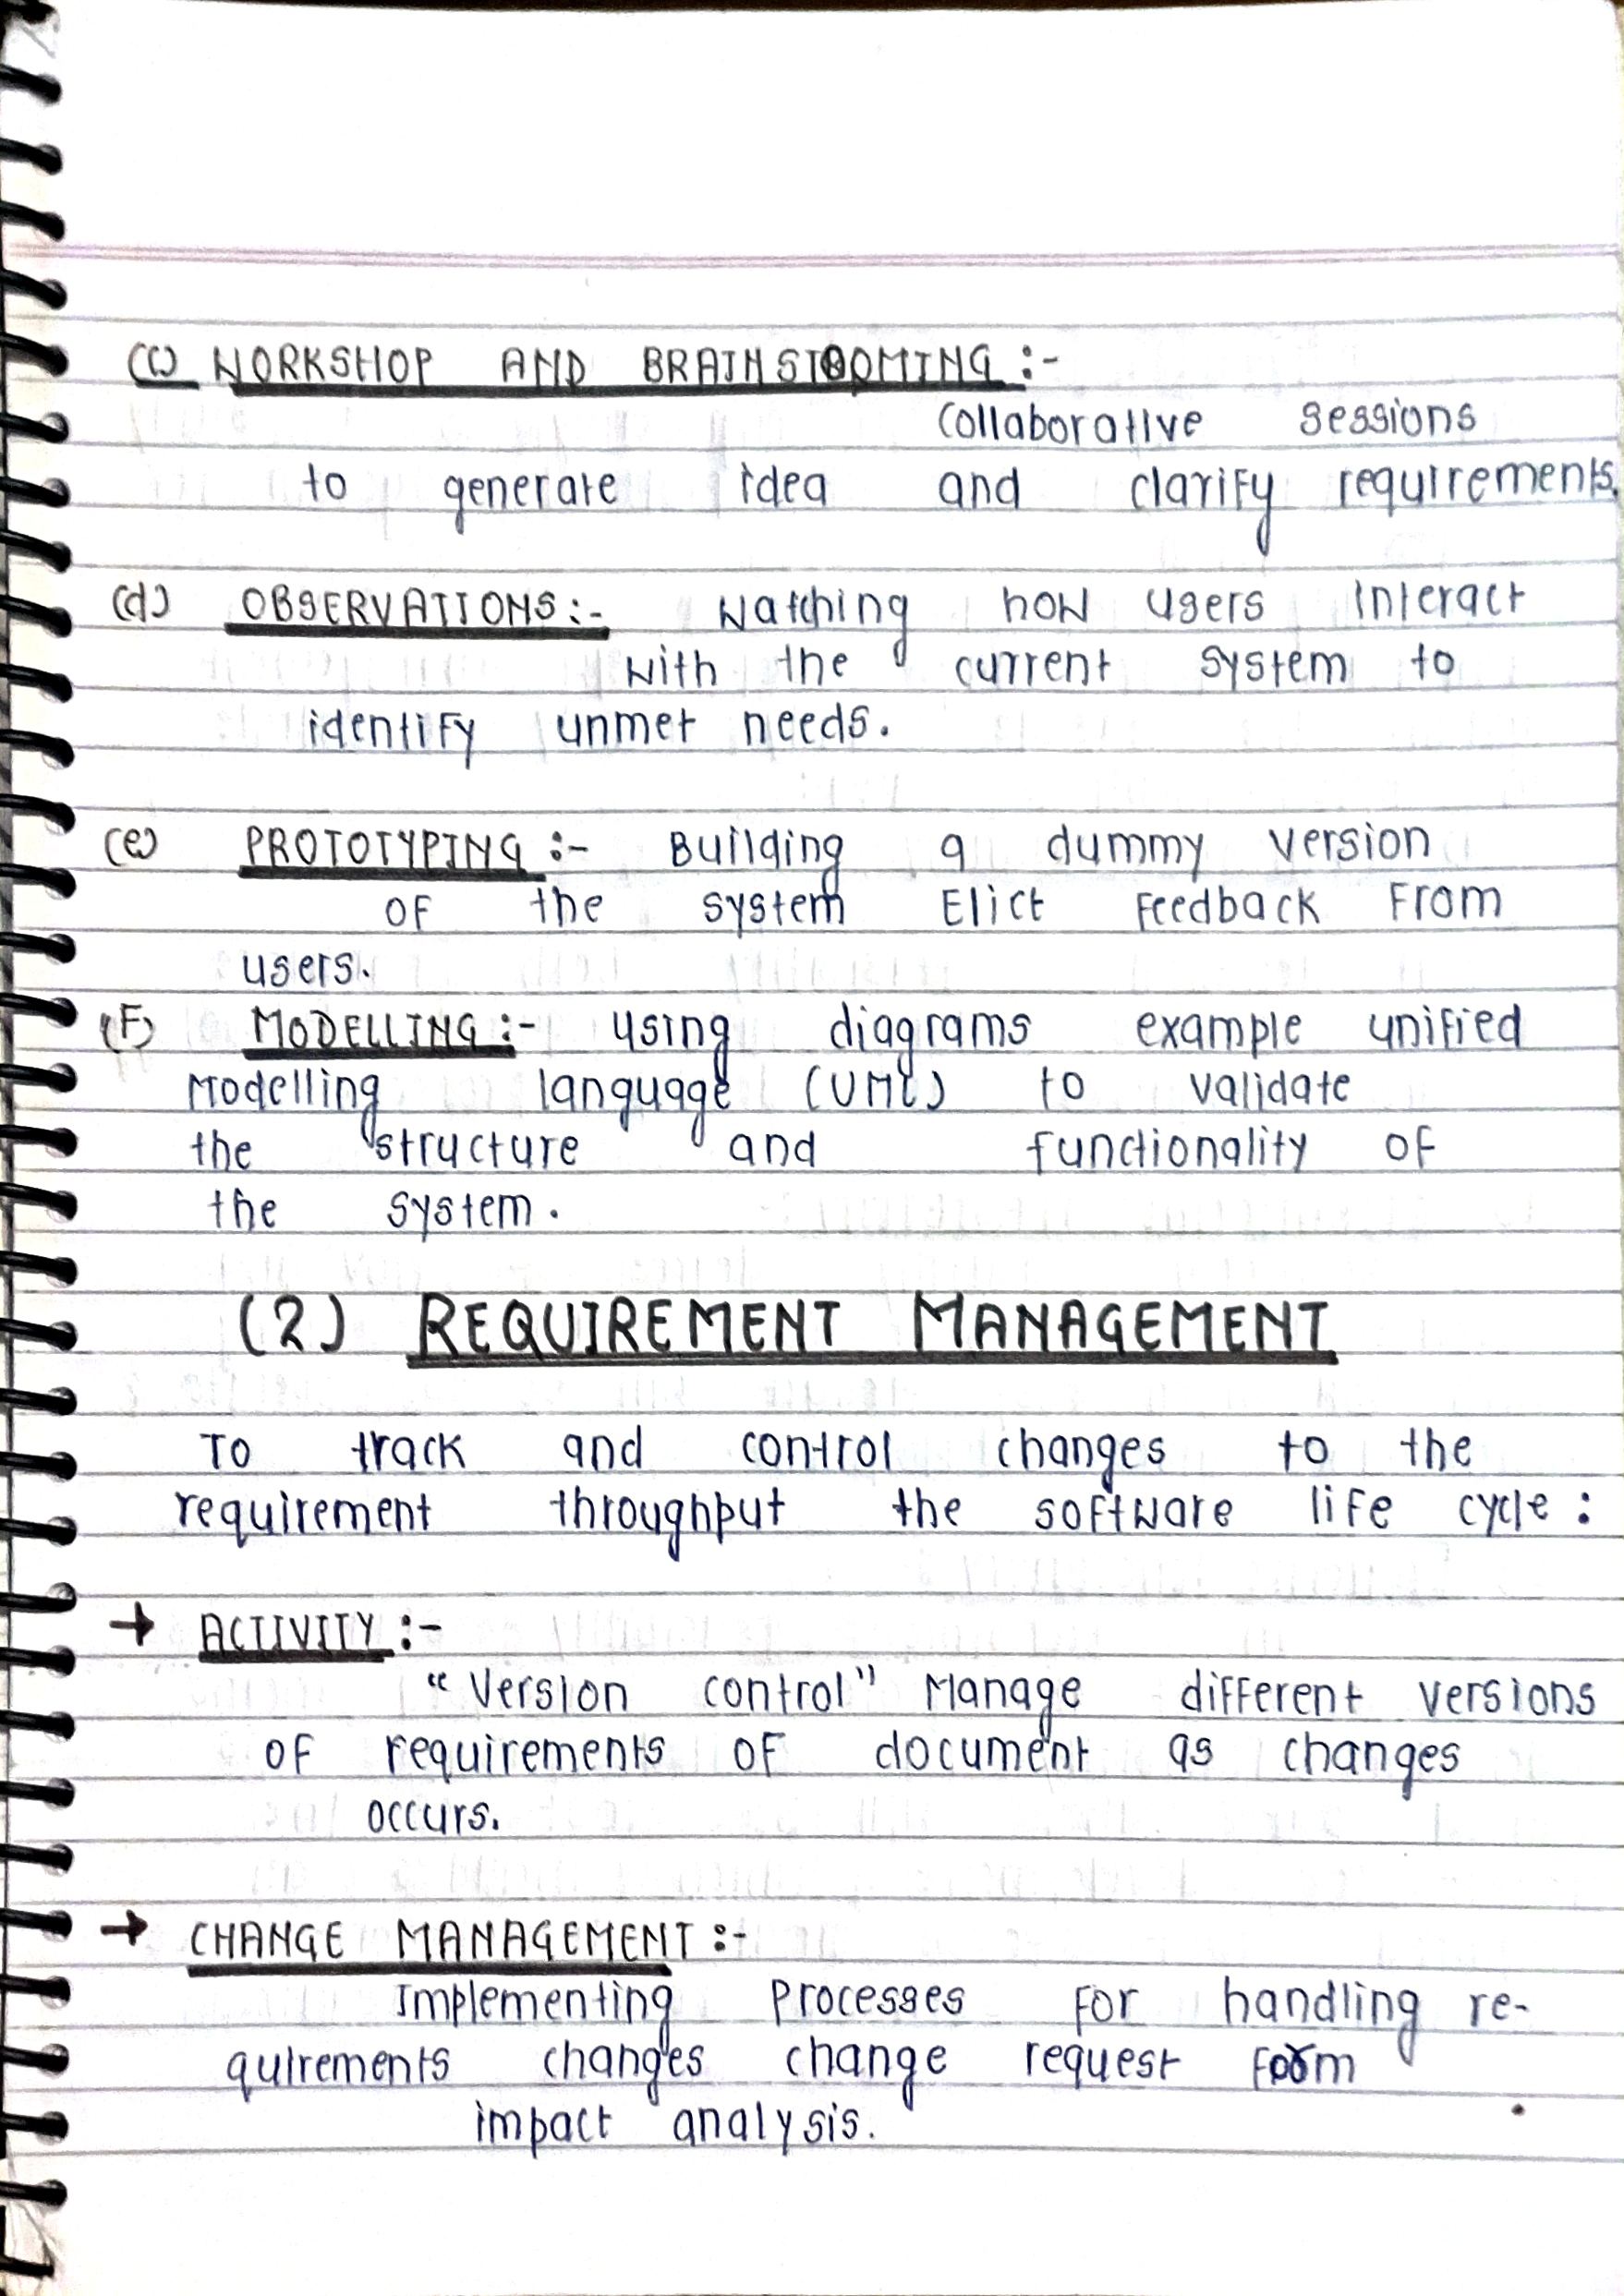 (c) WORKSHOP AND BRAINSTOOMING :-
Collaborative sessions
to generate idea and clarify requirements.
(d) OBSERVATIONS :- Watching how users interact
with the current system to
identify unmet needs.
(e) PROTOTYPING :- Building a dummy version
of the system Elict Feedback From
users.
(F) MODELLING :- using diagrams example unified
Modelling language (UML) to validate
the structure and functionality of
the system.
(2) REQUIREMENT MANAGEMENT
To track and control changes to the
requirement throughput the software life cycle :
→ ACTIVITY :-
"Version control" Manage different versions
of requirements of document as changes
occurs.
→ CHANGE MANAGEMENT :-
Implementing Processes For handling re-
quirements changes change request Form
impact analysis.